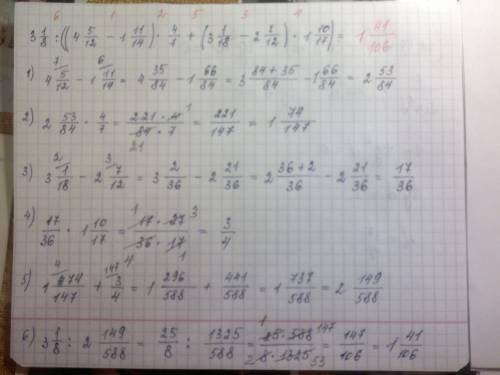 6 1 2 5 3 4
3 1/8 : ((4 5/12 - 1 11/14) · 4/7 + (3 1/18 - 2 7/12) · 1 10/17) = 1 41/106
1) 4 5/12 - 1 11/14 = 4 35/84 - 1 66/84 = 3 (84+35)/84 - 1 66/84 = 2 53/84
2) 2 53/84 · 4/7 = (221 · 4)/(84 · 7) = 221/147 = 1 74/147
3) 3 1/18 - 2 7/12 = 3 2/36 - 2 21/36 = 2 (36+2)/36 - 2 21/36 = 17/36
4) 17/36 · 1 10/17 = (17 · 27)/(36 · 17) = 3/4
5) 1 74/147 + 3/4 = 1 296/588 + 441/588 = 1 737/588 = 2 149/588
6) 3 1/8 : 2 149/588 = 25/8 : 1325/588 = (25 · 588)/(8 · 1325) = 147/106 = 1 41/106